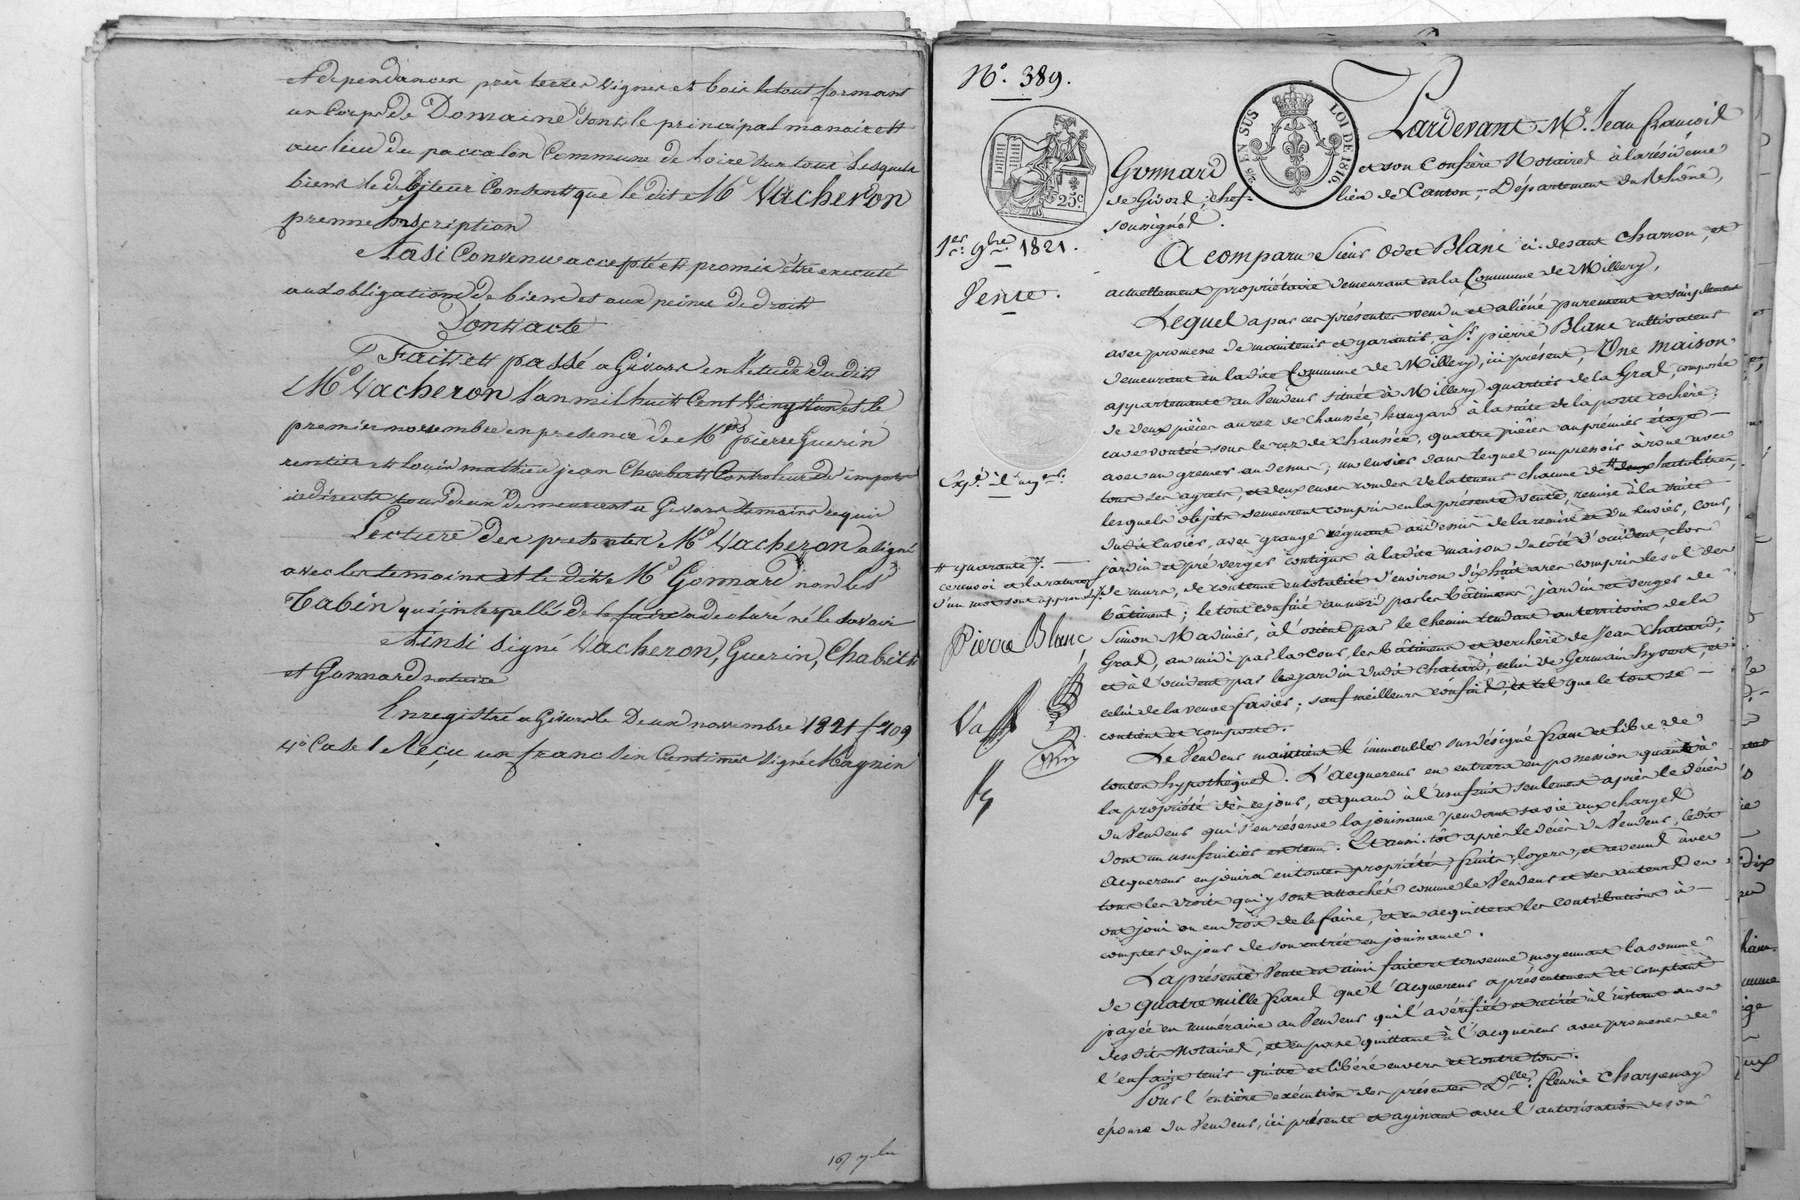 et dependances près terres vignes et bois le tout formant
un Corps de Domaine dont le principal manoir est
au lieu du paccalon Commune de Loire sur tous Lesquels
biens le débiteur Consent que le dit Me Vacheron
prenne Inscription
Ainsi Convenu accepté et promis être executé
aux obligations de biens et aux peines de droit
Dont acte
Fait et passé a Givors en l'etude du dit
Me Vacheron L'an mil huit Cent Vingt un et le
premier novembre en presence de Mrs pierre Guerin
rentier et Louis mathieu jean Chabert Controleur des impots
indirects tous deux demeurant a Givors temoins requis
Lecture des presentes Me Vacheron a signé
avec les temoins et le dit Me Gonnard non les
Tabin qui interpellé de le faire a declaré ne le savoir
Ainsi signé Vacheron, Guerin, Chabert
et Gonnard notaire
Enregistré a Givors le Deux novembre 1821 fo 109
Vo Case 1 Reçu un franc dix Centimes Signé Magnin
No. 389.
25c
EN SUS
LOI DE 1816.
Pardevant Me. Jean françois
Gonnard et son Confrère Notaires à la résidence
de Givors, chef-lieu de Canton, Département du Rhône,
soussignés.
1er. 9bre 1821.
Vente.
A comparu Sieur Odet Blanc ci-devant charron, et
actuellement propriétaire demeurant en la Commune de Millery,
Lequel a par ces présentes vendu et aliéné purement et simplement
avec promesse de maintenir et garantir, à Sr. pierre Blanc cultivateur
demeurant en ladite Commune de Millery, ici présent, Une maison
appartenante au Vendeur située à Millery quartier de la Grad, composée
de deux pièces au rez de chaussée, hangard à la suite de la porte cochère;
cave voutée sous le rez de chaussée, quatre pièces au premier étage
avec un grenier au dessus, un cuvier dans lequel un pressoir à roue avec
tous ses agrets, et deux cuves rondes de la teneur chacune de # deux hectolitres,
lesquels objets demeurent compris en la présente vente, remise à la suite
dudit cuvier, avec grange régnant au dessus de la remise et du cuvier, cour,
jardin et pré verger contigus à ladite maison du côté d'occident, clos
de murs, de contenue en totalité d'environ dix huit ares compris le sol des
bâtiments; le tout confiné au nord par les bâtiments, jardin et verger de
Simon Madinier, à l'orient par le chemin tendant au territoire de la
Grad, au midi par la cour, les bâtiments et verchère de Jean Chatard,
et à l'occident par le jardin dudit Chatard, celui de Germain hyvert, et
celui de la veuve favier; sauf meilleurs confins, et tel que le tout se
contient et comporte.
Expd. d'argent.
# quarante
renvoi et la rature
d'un mot sont approuvés.
Pierre Blanc
Le Vendeur maintient l'immeuble sus désigné franc et libre de
toutes hypothèques. L'acquereur en entrera en possession quant à
la propriété dès ce jour, et quant à l'usufruit seulement après le décès
du Vendeur qui s'en réserve la jouissance pendant sa vie aux charges
dont un usufruitier est tenu. Et aussi-tôt après le décès du Vendeur, ledit
acquereur en jouira en toutes propriétés, fruits, loyers, et revenus avec
tous les droits qui y sont attachés comme le Vendeur et ses auteurs en
ont joui ou eu droit de le faire, et en acquittera les contributions à
compter du jour de son entrée en jouissance.
La présente Vente est ainsi faite et convenue moyennant la somme
de quatre mille francs que l'acquereur a présentement et comptant
payée en numéraire au Vendeur qui l'a vérifiée et retirée à l'instant au vu
desdits Notaires, et en passe quittance à l'acquereur avec promesse de
l'en faire tenir quitte et libéré envers et contre tous.
Pour l'entière exécution des présentes Dlle. fleurie Charpenay
épouse du Vendeur, ici présente et agissant avec l'autorisation de son